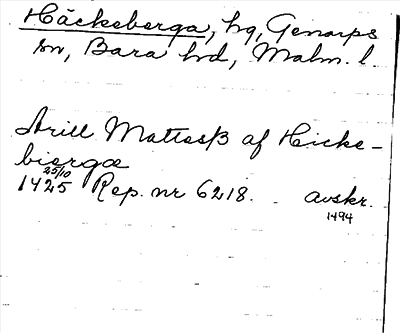 Häckeberga, hg, Genarps
sn, Bara hd, Malm. l.
Arill Mattesß af Hicke-
biergæ
25/10
1425 Rep. nr 6218. avskr.
1494